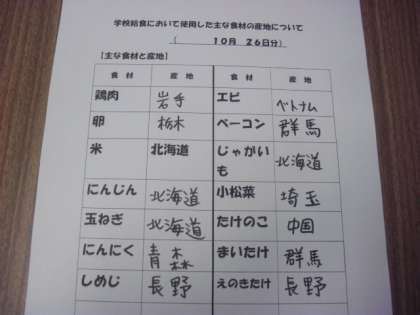 学校給食において使用した主な食材の産地について
( 10月 26日分)
【主な食材と産地】
食材 産地 食材 産地
鶏肉 岩手 エビ ベトナム
卵 栃木 ベーコン 群馬
米 北海道 じゃがいも 北海道
にんじん 北海道 小松菜 埼玉
玉ねぎ 北海道 たけのこ 中国
にんにく 青森 まいたけ 群馬
しめじ 長野 えのきたけ 長野